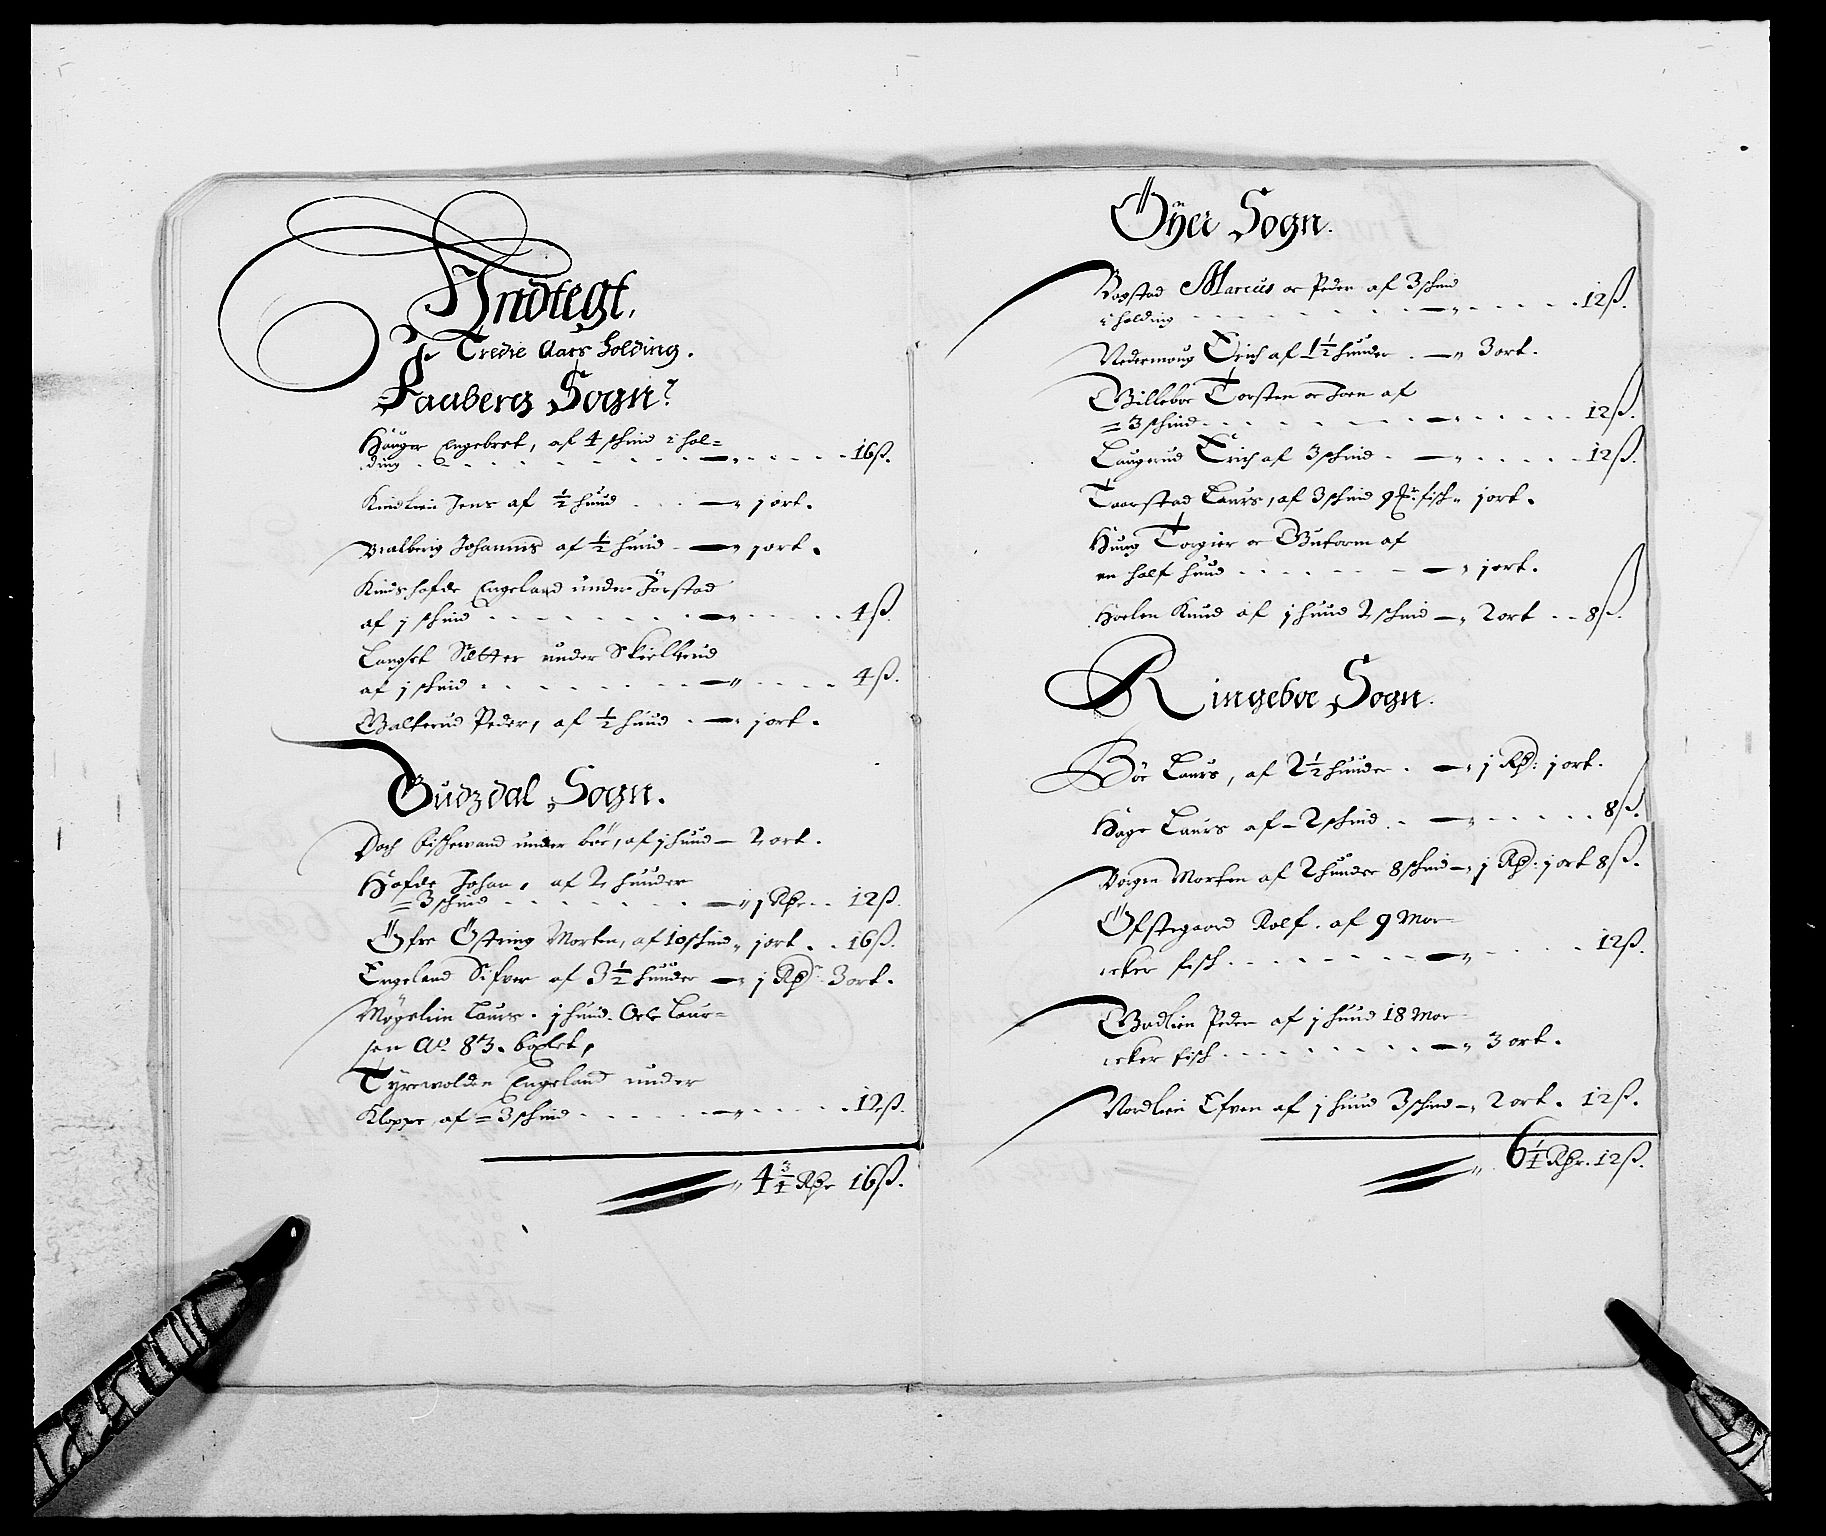 Indtegt,
Tredie Aars holding.
Faaberg Sogn
Hauger Engebret, af 4 schind i hol=
ding . . . . . . . . — „ . . . . . 16 ß.
Kindlien Jens af ½ huud . . . — „ j ort.
Bralberig Johannis af ½ huud — „ j ort.
Kindshofde Engeland under Jörstad
af j schind . . . . . . . — „ . . . . . 4 ß.
Langset Sætter under Skielkrud
af j schind . . . . . . . — „ . . . . 4 ß.
Balkerud Peder, af ½ huud . — „ j ort.
Gudzdal Sogn.
Doch fischewand under böe, af j huud — 2 ort.
Hofde Johan, af 2 huuder
= 3 schind . . . . . . — „ j Rdr . . 12 ß.
Öfre Östring Morten, af 10 schind „ j ort . . 16 ß.
Engeland Sifver af 3½ huuder — „ j Rd: 3 ort.
Mögelien Laurs. j huud. Ole Laur=
sen Ao 83. böxlet,
Tyrewolden Engeland under
Kloppe, af = 3 schind . . . . . — „ . . . . . 12 ß.
„ 4¾ Rdr 16 ß.
Öyer Sogn.
Bogstad Marcus oc Peder af 3 schind
i holding . . . . . . . — „ . . . . . 12 ß.
Nedermoug Erich af 1½ huuder . — „ 3 ort.
Billeboe Torsten oc Joen af
= 3 schind . . . . . . . — „ . . . . . 12 ß.
Laugerud Erich af 3 schind . — „ . . . . . 12 ß.
Taarstad Laurs, af 3 schind 9 fisch „ j ort.
Huug Torgier oc Gutorm af
en half huud . . . . . . — „ j ort.
Hoelen Knud af j huud 2 schind — „ 2 ort . . 8 ß.
Ringeboe Sogn.
Böe Laurs, af 2½ huuder . — „ j Rd: j ort.
Hage Laurs af = 2 schind . . — „ . . . . . 8 ß.
Morten af 2 huuder 8 schind — „ j Rd: j ort 8 ß.
Öfstegaard Rolf. af 9 Mar=
cker fisch . . . . . . . — „ . . . . 12 ß.
Badlien Peder af j huud 18 Mar=
cker fisch . . . . . . . — „ 3 ort.
Nordlien Efven af j huud 3 schind — „ 2 ort . 12 ß.
„ 6¼ Rdr. 12 ß.